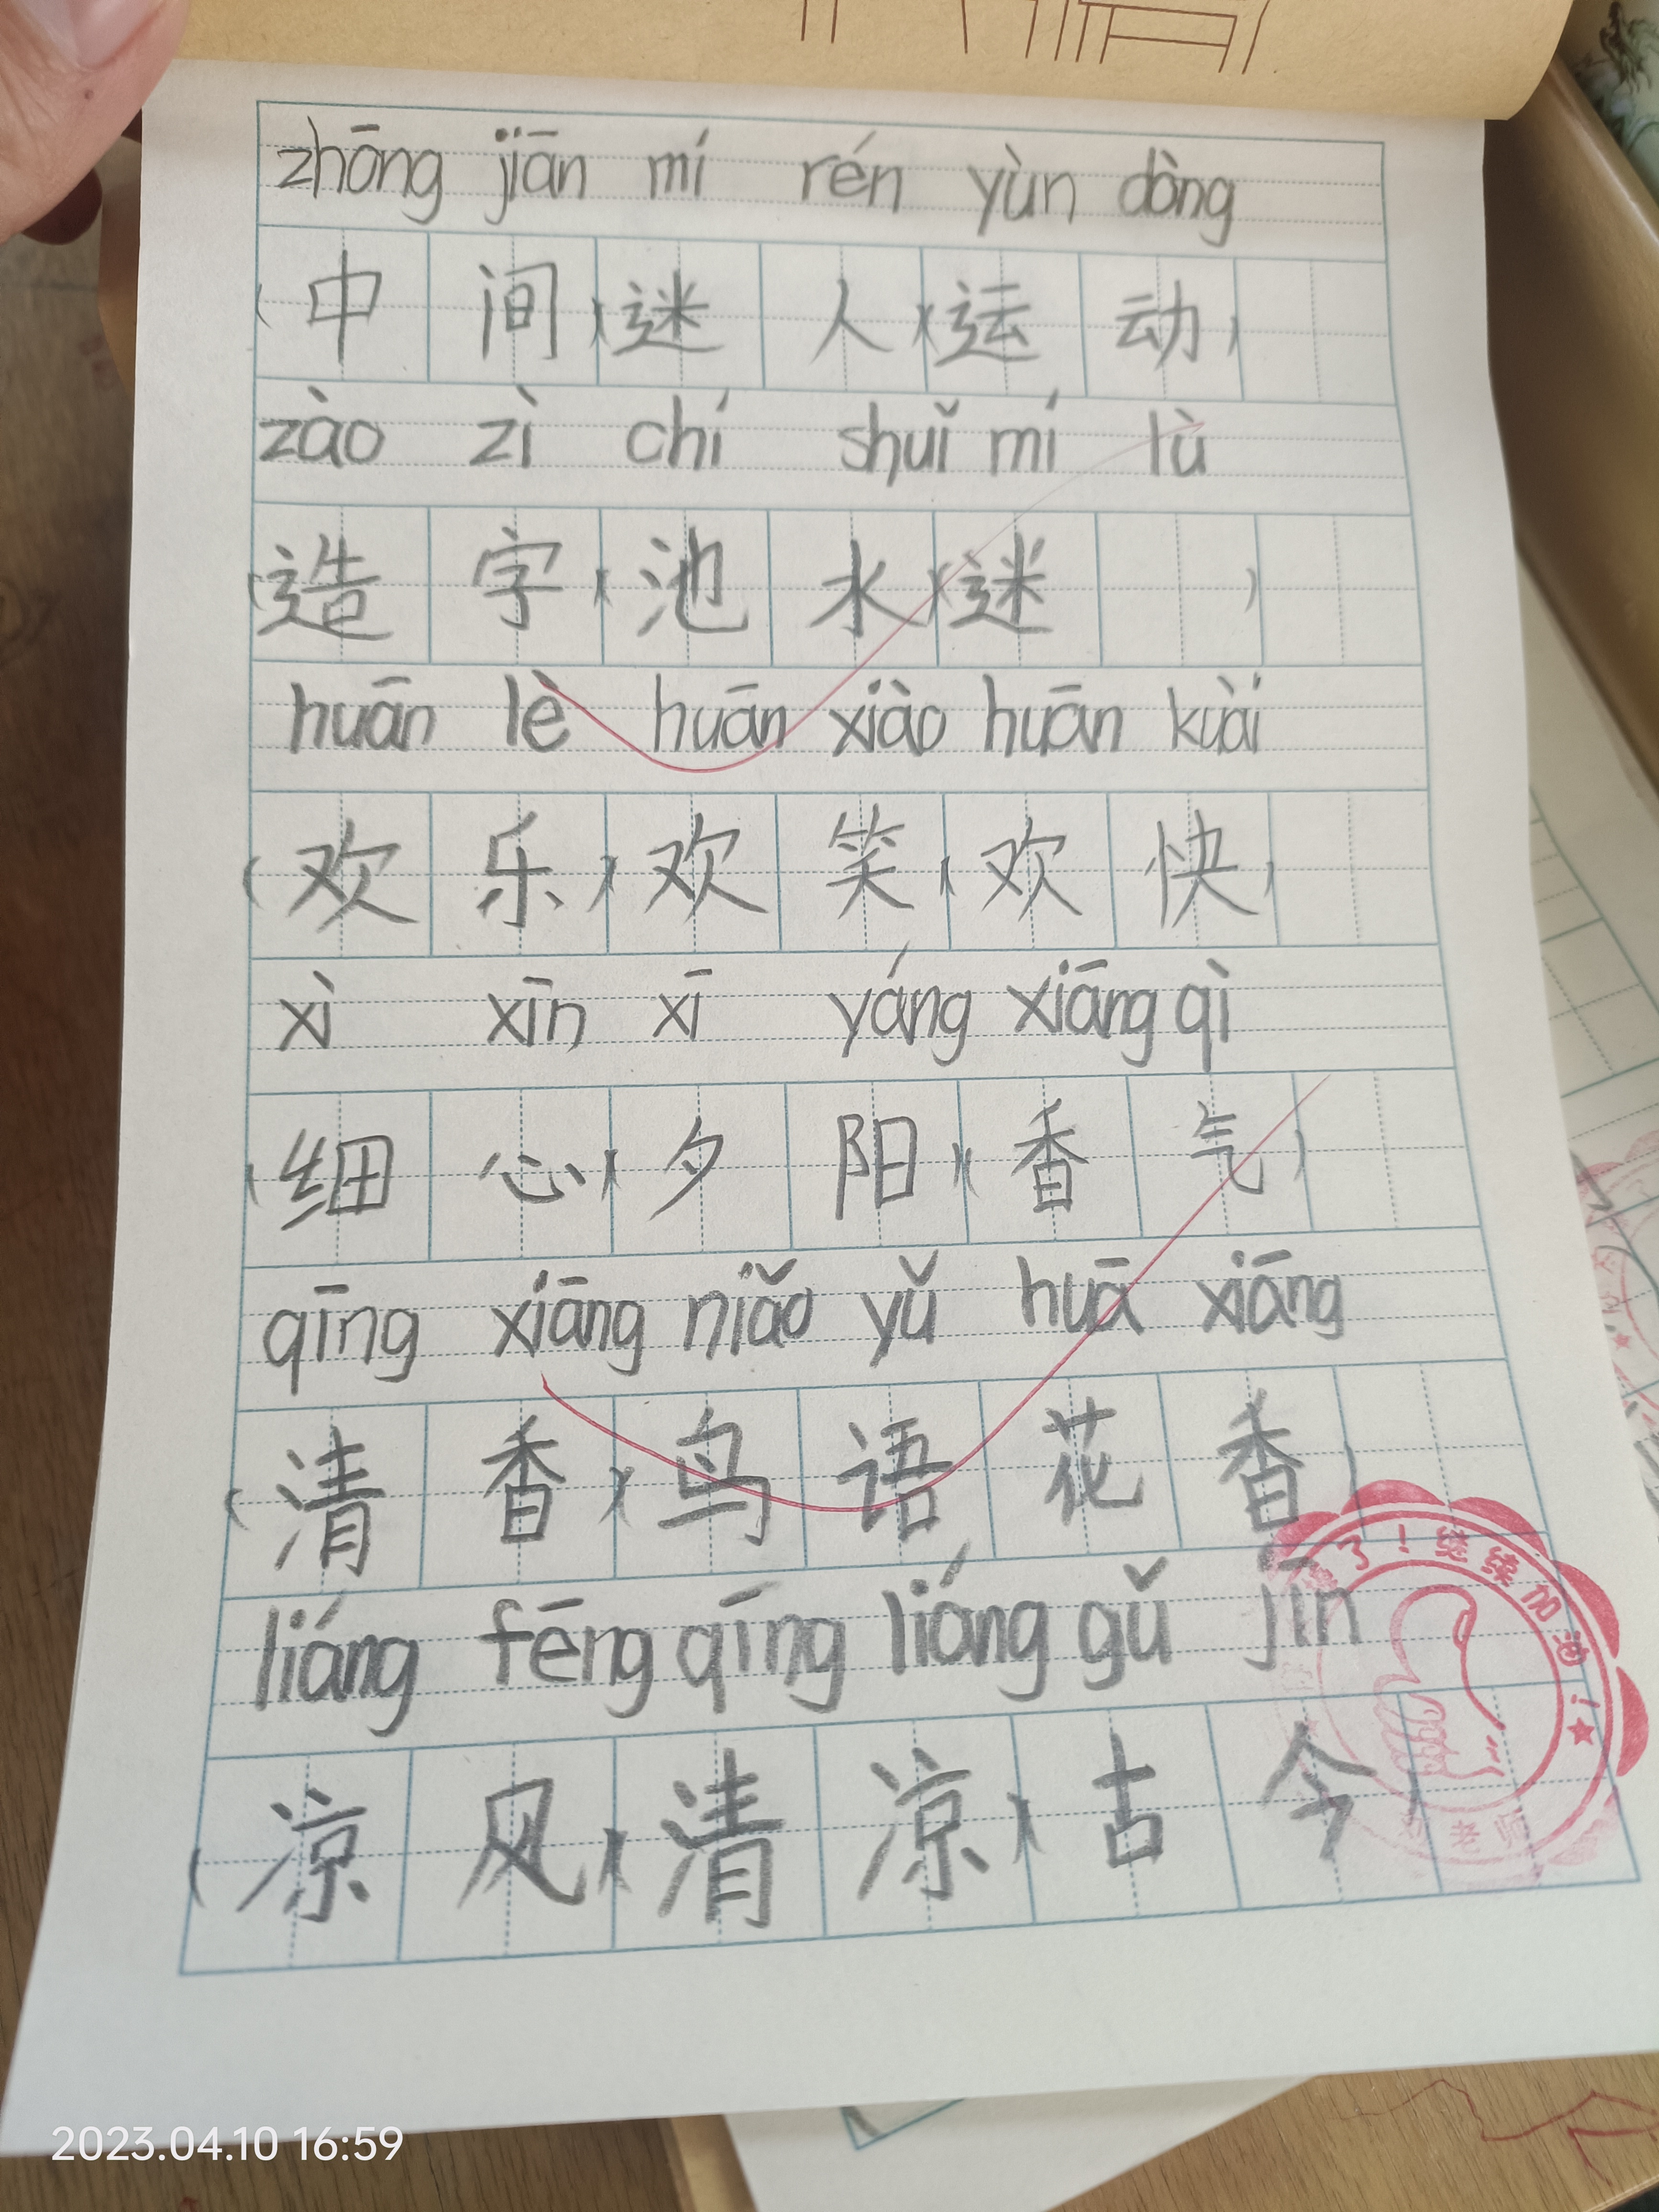 zhōng jiān mí rén yùn dòng
(中间)(迷人)(运动)
zào zì chí shuǐ mí lù
(造字)(池水)(迷 )
huān lè huān xiào huān kuài
(欢乐)(欢笑)(欢快)
xì xīn xī yáng xiāng qì
(细心)(夕阳)(香气)
qīng xiāng niǎo yǔ huā xiāng
(清香)(鸟语花香)
liáng fēng qīng liáng gǔ jīn
(凉风)(清凉)(古今)
了！继续加油！
老师
2023.04.10 16:59